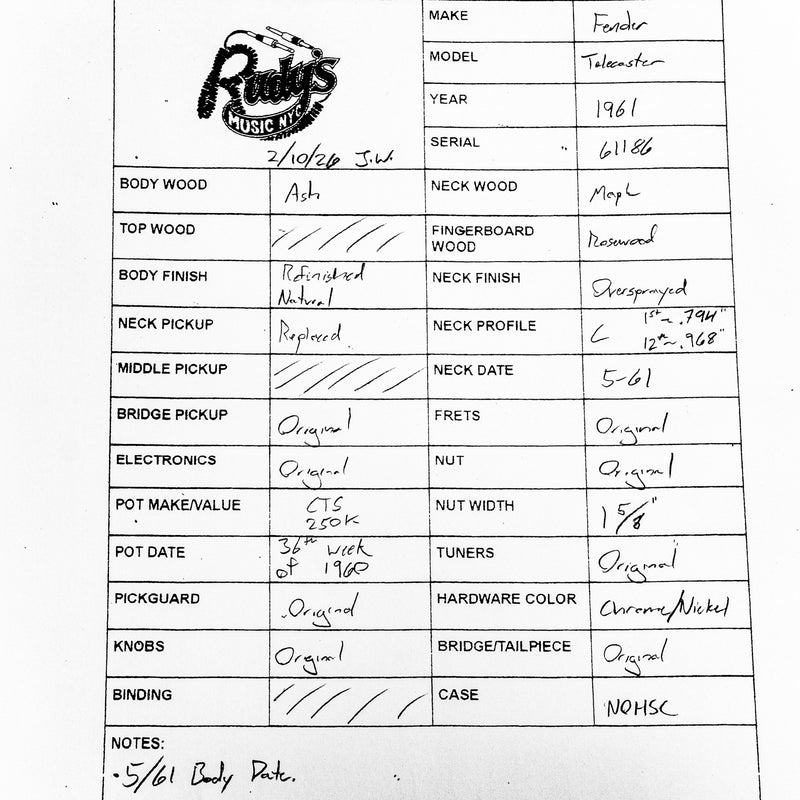 Rudy's
MUSIC NYC
2/10/26 J.W.
MAKE Fender
MODEL Telecaster
YEAR 1961
SERIAL 61186
BODY WOOD Ash
NECK WOOD Maple
TOP WOOD
FINGERBOARD WOOD Rosewood
BODY FINISH Refinished Natural
NECK FINISH Oversprayed
NECK PICKUP Replaced
NECK PROFILE C 1st ~ .794" 12th ~ .968"
MIDDLE PICKUP
NECK DATE 5-61
BRIDGE PICKUP Original
FRETS Original
ELECTRONICS Original
NUT Original
POT MAKE/VALUE CTS 250K
NUT WIDTH 1 5/8"
POT DATE 36th week of 1960
TUNERS Original
PICKGUARD Original
HARDWARE COLOR Chrome/Nickel
KNOBS Original
BRIDGE/TAILPIECE Original
BINDING
CASE NOHSC
NOTES:
• 5/61 Body Date.